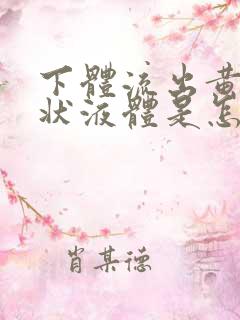 下體流出黃
狀液體是怎
肖某德